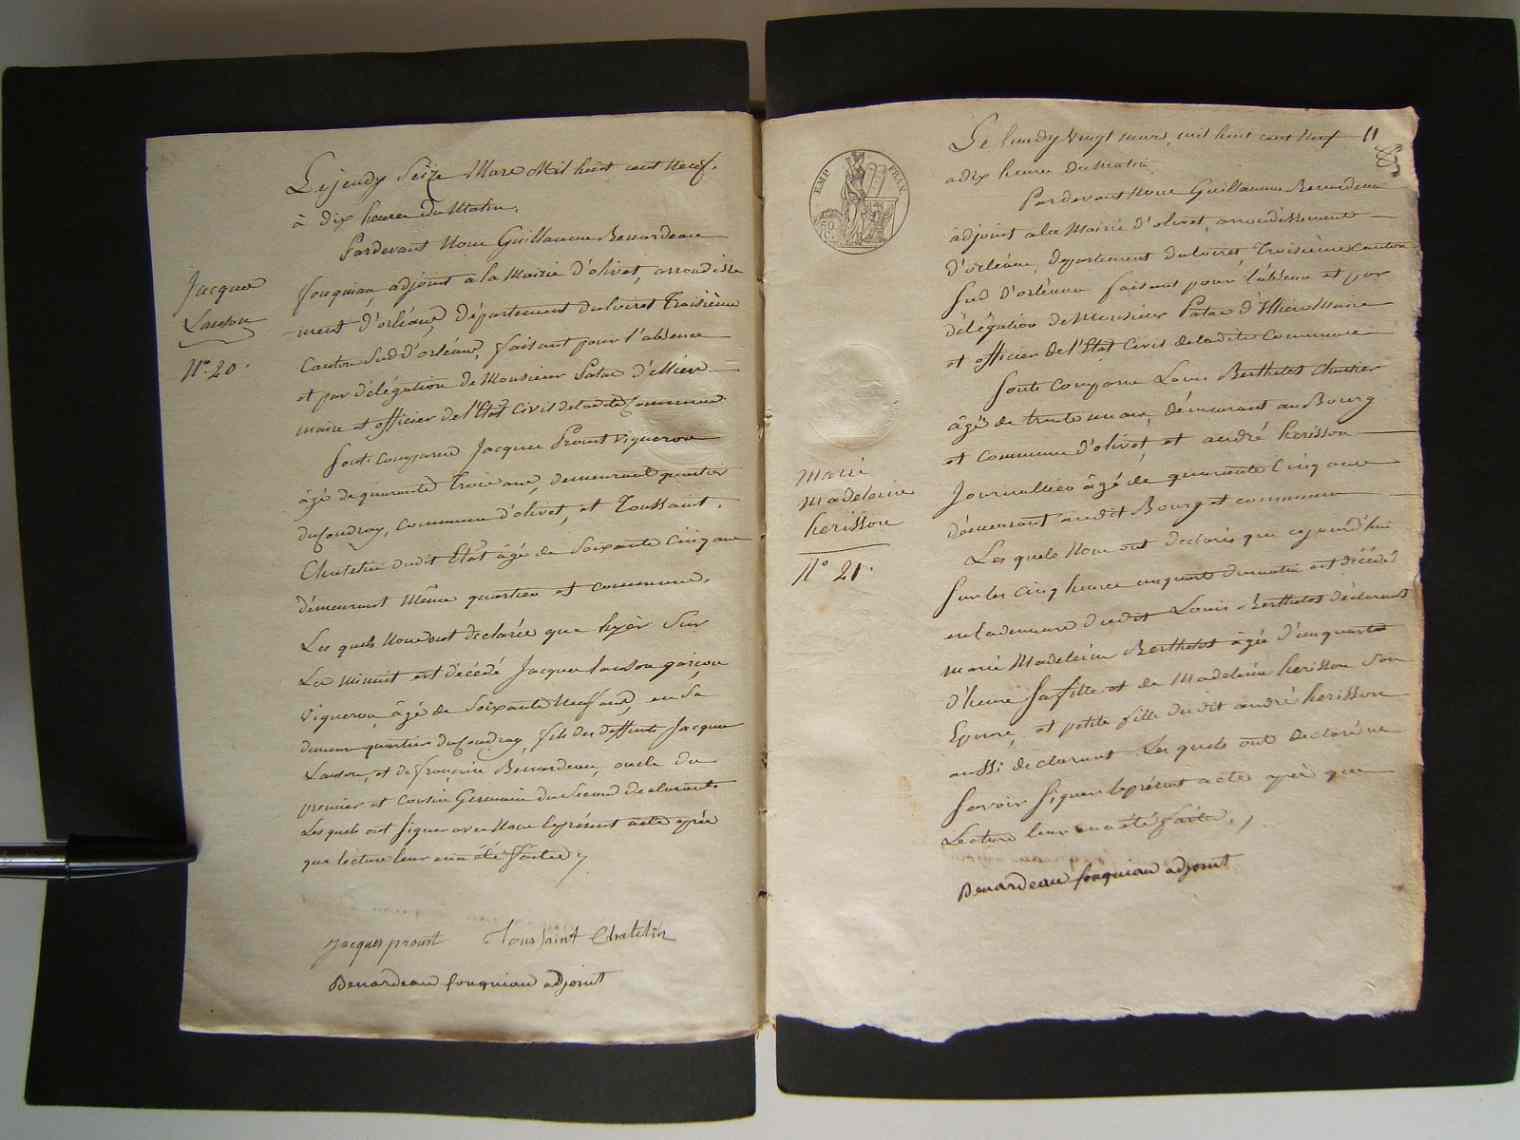 Le jeudy Seize Mars Mil huit cent Neuf.
à dix heures du Matin.
Pardevant Nous Guillaume Benardeau
fouqniau, adjoint a la Mairie d'olivet, arrondisse
ment d'orléans, département du loiret Troisième
Canton Sud d'orléans, faisant pour l'absence
et par délégation de Monsieur Patas d'illiers
maire et officier de l'Etat Civil de ladite Commune
Sont comparus Jacques Proust vigneron
âgé de quarante Trois ans, demeurant quartier
du Coudray, commune d'olivet, et Toussaint
Chatelin dudit Etat âgé de Soixante Cinq ans
demeurant Même quartier et commune.
Les quels Nous ont declarés que hyer Sur
Les minuit est décédé Jacques Lanson garçon
vigneron, âgé de Soixante Neuf ans, en Sa
demeure quartier du Coudray, fils des deffunts Jacques
Lanson, et de françoise Benardeau, oncle du
premier et Cousin Germain du Second declarants
Les quels ont Signer avec Nous le présent acte après
que lecture leur en a été faitte
Jacques
Lanson
N° 20.
Jacques proust Toussaint Chatelin
Benardeau fouqniau adjoint
11
Le lundy vingt mars, mil huit cent Neuf
a dix heures du Matin
Pardevant Nous Guillaume Benardeau
adjoint a la Mairie d'olivet, arrondissement
d'orléans, département du loiret Troisieme Canton
Sud d'orléans faisant pour l'absence et par
délégation de Monsieur Patas d'illiers Maire
et officier de l'Etat Civil de ladite Commune
Sont Comparus Louis Berthelot
âgé de trente un ans, demeurant au Bourg
et commune d'olivet, et andré herisson
Journallier âgé de quarante Cinq ans
demeurant audit Bourg et commune
Les quels Nous ont declarés que cejourd'hui
Sur les Cinq heures du matin est décédé
en la demeure dudit Louis Berthelot déclarant
marie Madeleine Berthelot âgée d'un quart
d'heure Sa fille et de Madeleine herisson Son
Epouse, et petite fille dudit andré herisson
aussi declarant Les quels ont declaré ne
Savoir Signer le présent acte après que
Lecture leur en a été faitte.
EMP. FRAN.
Marie
Madeleine
herisson
N° 21.
Benardeau fouqniau adjoint